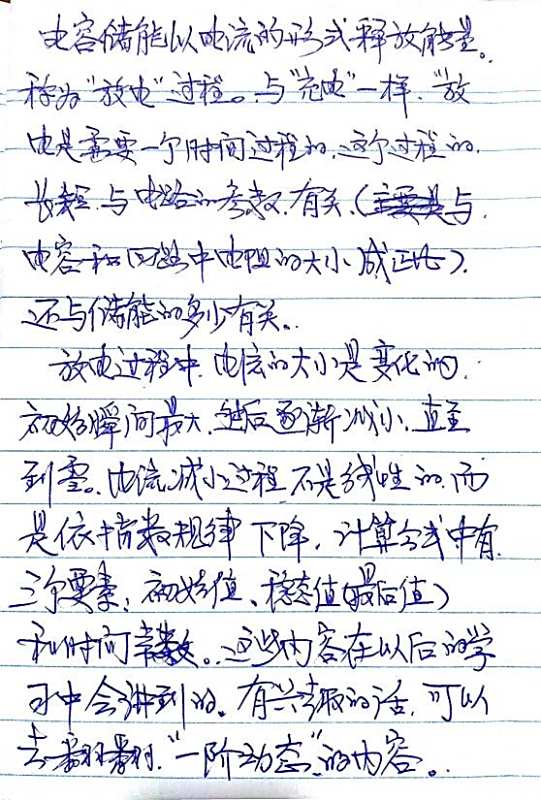 电容储能以电流的形式释放能量。
称为“放电”过程。与“充电”一样,“放
电是需要一个时间过程的,这个过程的
长短,与电路的参数,有关,(与
电容和回路中电阻的大小成正比)。
还与储能的多少有关。
放电过程中,电流的大小是变化的,
初始瞬间最大,然后逐渐减小,直至
到零。电流减小过程不是线性的,而
是依指数规律下降,计算公式中有
三个要素:初始值、稳态值(最后值)
和时间常数。这些内容在以后的学
习中会讲到的。有兴趣的话,可以
去翻翻,“一阶动态”的内容。